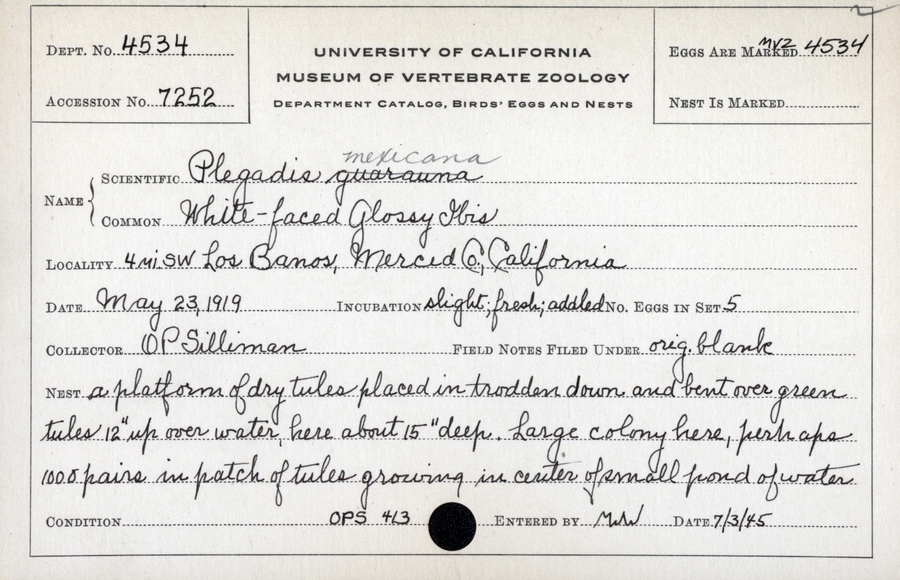 DEPT. NO. 4534
UNIVERSITY OF CALIFORNIA
MUSEUM OF VERTEBRATE ZOOLOGY
DEPARTMENT CATALOG, BIRDS' EGGS AND NESTS
EGGS ARE MARKED MVZ 4534
ACCESSION NO. 7252
NEST IS MARKED
mexicana
NAME SCIENTIFIC Plegadis guarauna
COMMON White-faced Glossy Ibis
LOCALITY 4 mi. SW Los Banos, Merced Co., California
DATE May 23, 1919 INCUBATION slight; fresh; addled NO. EGGS IN SET 5
COLLECTOR OP Silliman FIELD NOTES FILED UNDER orig. blank
NEST a platform of dry tules placed in trodden down and bent over green
tules 12" up over water, here about 15" deep. Large colony here, perhaps
1000 pairs in patch of tules growing in center of small pond of water
CONDITION OPS 413 ENTERED BY DATE 7/3/45